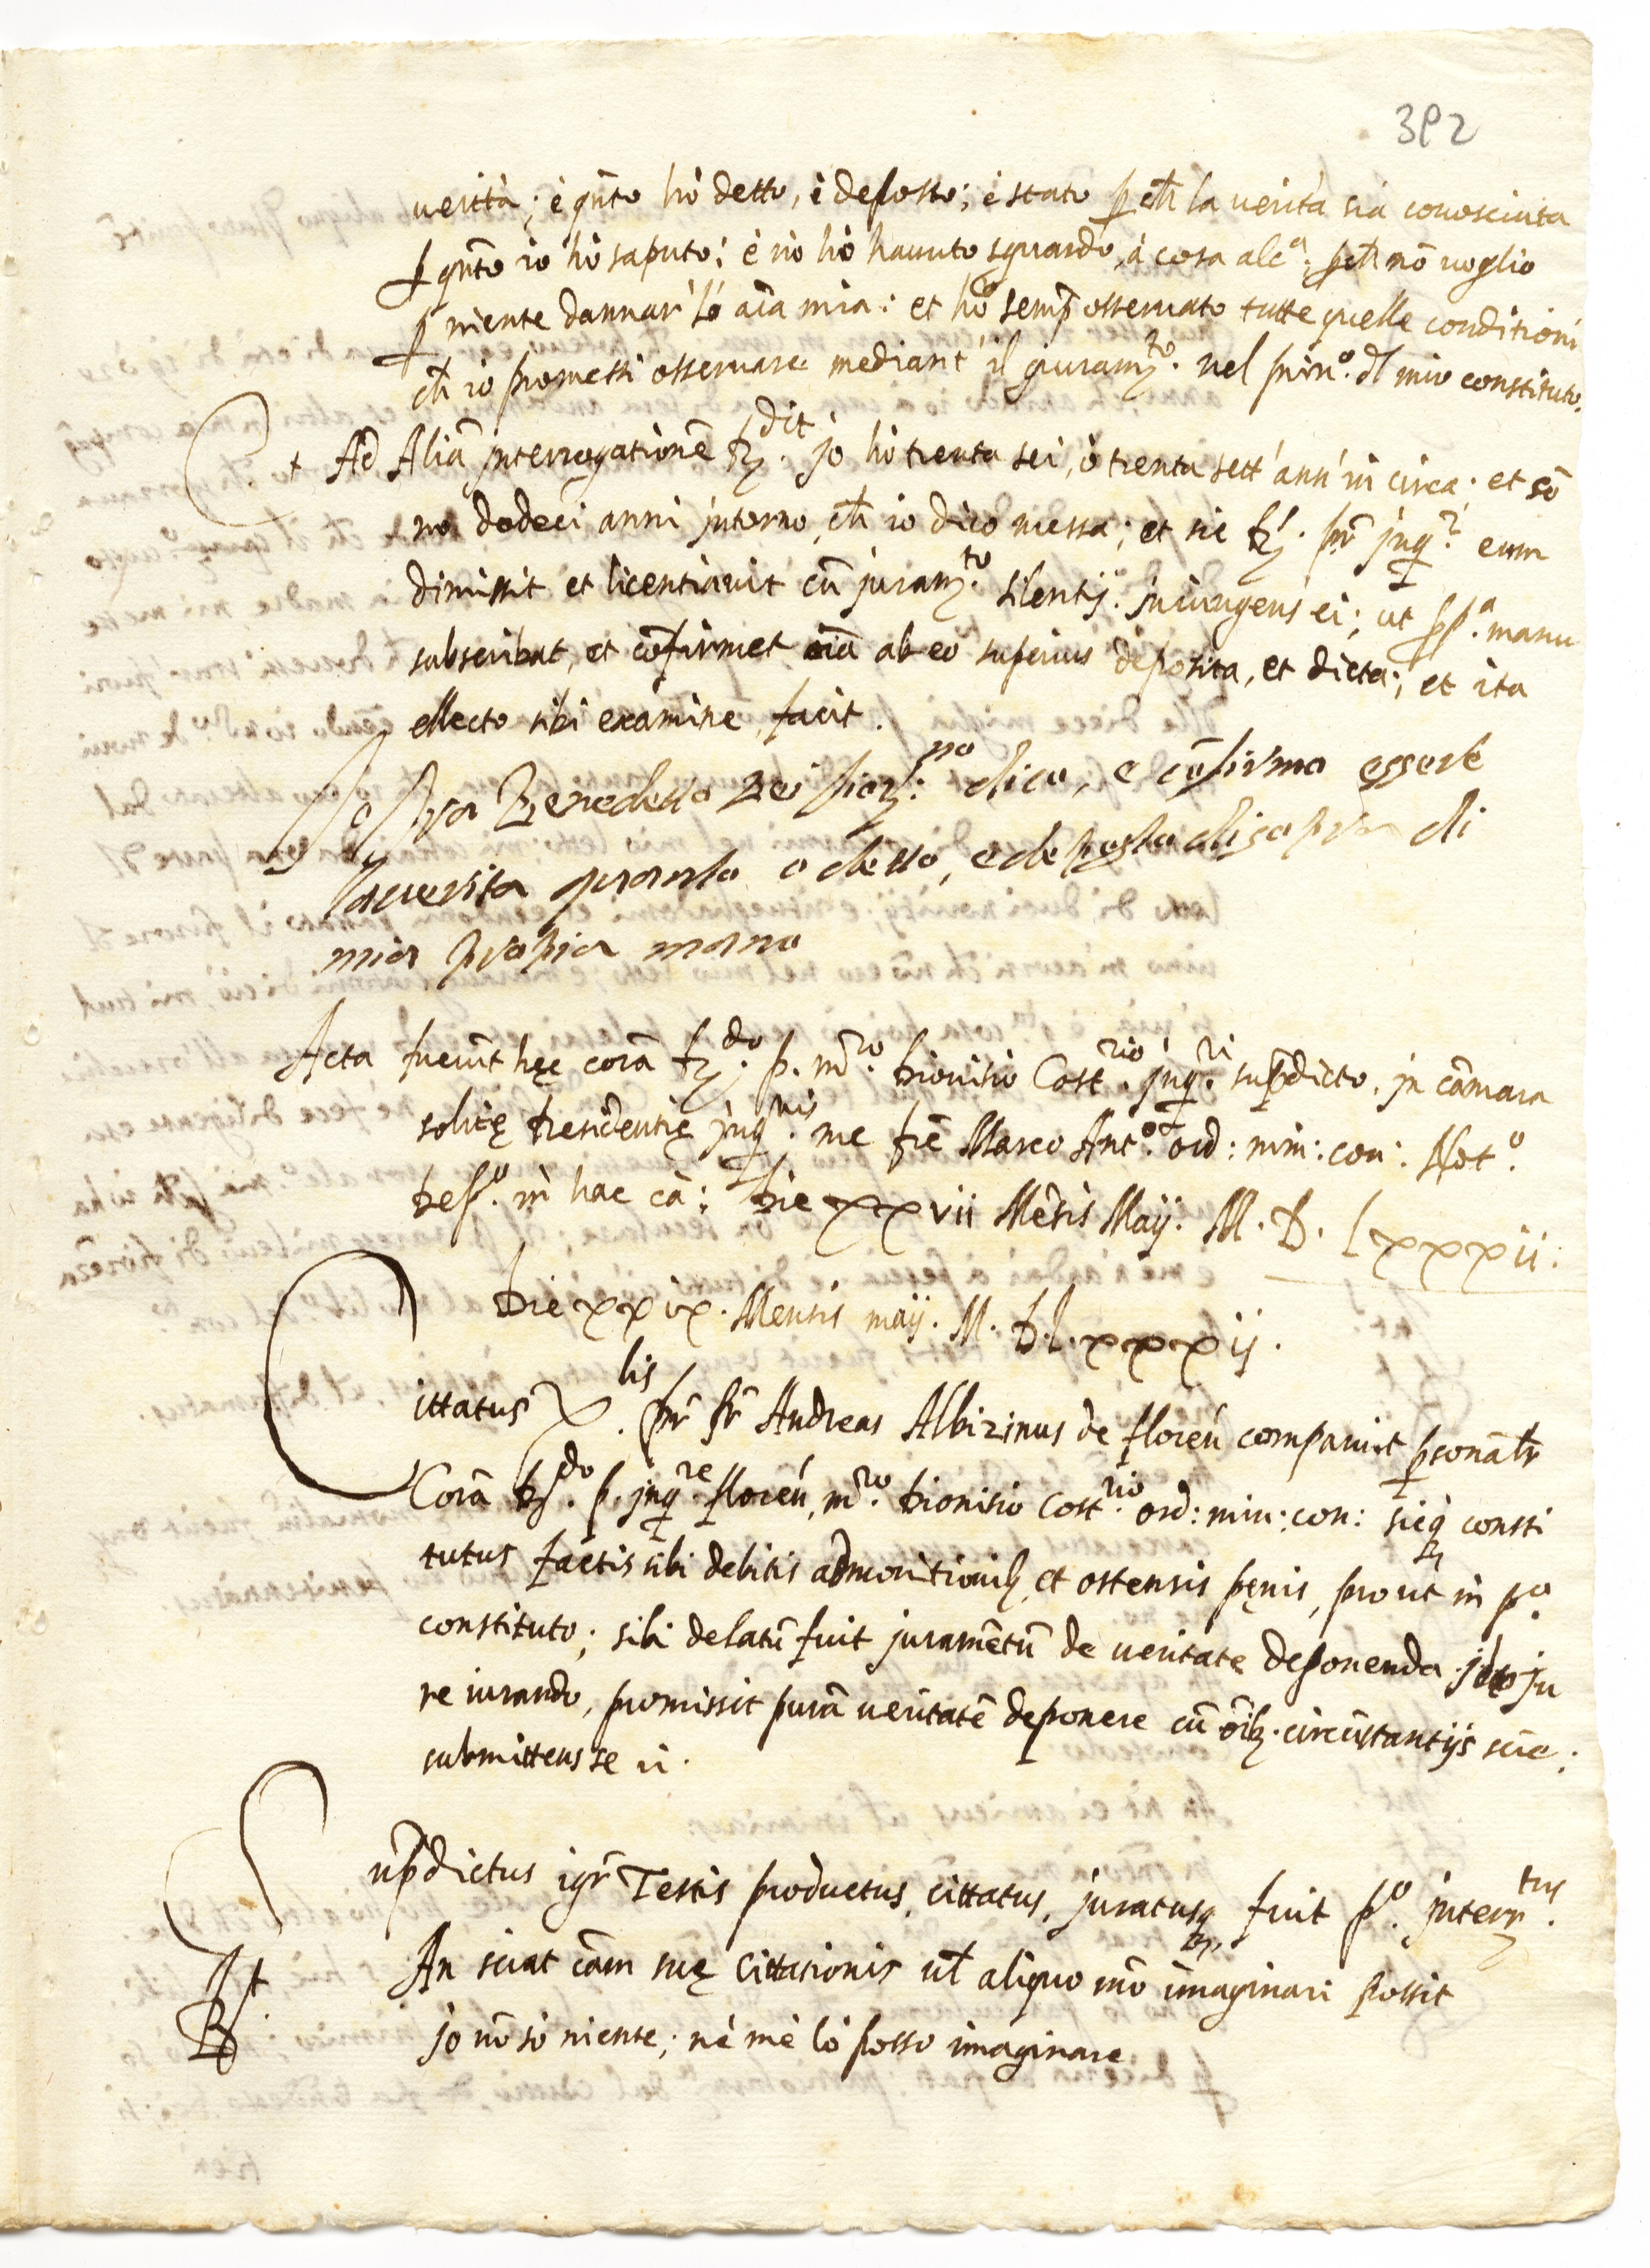 392
uerità; è qñto hò detto, è deposto; è stato p ch la uerità sia conosciuta
p qñto io hò saputo; è nō hò hauuto sguardo, à cosa alcª; pch nō uoglio
p niente dannar' lò aīa mia: et hò semp osseruato tutte quelle conditioni
ch io promessi osseruare mediant' il giuramto. nel prinº. dl mio constituto.
+ Ad Aliā jnterrogationē Rdit. jo hò trenta sei, ò trenta sett' ann' in circa; et sō
no dodeci anni jntorno, ch io dico messa; et sic R. pr jnqr. eum
dimissit et licentiauit cū juramto. silentij. jniungens ei; ut ppª. manu
subscribat, et cōfirmet oīa ab eo superius deposita, et dicta; et ita
electo sibi examine, facit.
Io fra Benedetto Nei fiorno dico, e cōfirmo essere
la uerita quanto o detto, e deposto di sopra di
mia propia mano
Acta fuerūt hęc corā Rdo. p. mro. Dionisio Costrio. jnqri. suprdicto. jn cāmara
solitę Residentię jnqnis. me frē Marco Antº. ord: min: con: Notº.
Depº. in hac cā: Die xxvii Mēsis Maij. M. D. lxxxii:
Die xxix. Mensis maij. M. D. l. xxxij.
Cittatus xlis. pr fr Andreas Albizinus de floreñ comparuit psonalr
Corā Rdo. p. jnqre floreñ, mro. Dionisio Costrio. ord: min: con: sicq consti
tutus factis sibi debitis admonitionib, et ostensis pęnis, prout in pº.
constituto; sibi delatū fuit juramētū de ueritate deponenda ju
re iurando, promissit purā ueritatē deponere cū oīb. circūstantijs suis;
submittens se ii.
Suprdictus igr Testis productus, cittatus, juratusq fuit pº. jnterrtus.
Jt. An sciat cām suę Cittationis ul aliquo mō imaginari possit
R. jo nō sò niente; nè mè lò posso imaginare